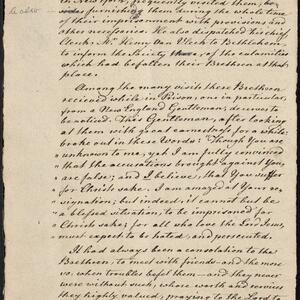 in New York, frequently visited them, he
He also
was furnishing them during the whole time
of their imprisonment with provisions and
other necessaries. He also dispatched his chief
Clerk Mr. Henry Van Vleck to Bethlehem,
to inform the Society, of the calamities
which had befallen their Brethren at that
place.
Among the many visits these Brethren
recieved while in Prison, one in particular,
from a New England Gentleman, deserves to
be noticed. This Gentleman, after looking
at them with great earnestness for a while
broke out in these Words: "Though You are
" unknown to me, yet I am fully convinced
" that the accusations brought against You,
" are false; and I believe, that You suffer
" for Christs sake. I am amazed at Your re-
" signation; but indeed, it cannot but be
" a blessed situation, to be imprisoned for
" Christs sake; for all who love the Lord Jesus,
" must expect to be hated, and persecuted.
It had always been a consolation to the
Brethren, to meet with friends - and the more
so, when troubles befell them - and they never
were without such, whose worth and services
they highly valued, praying to the Lord to